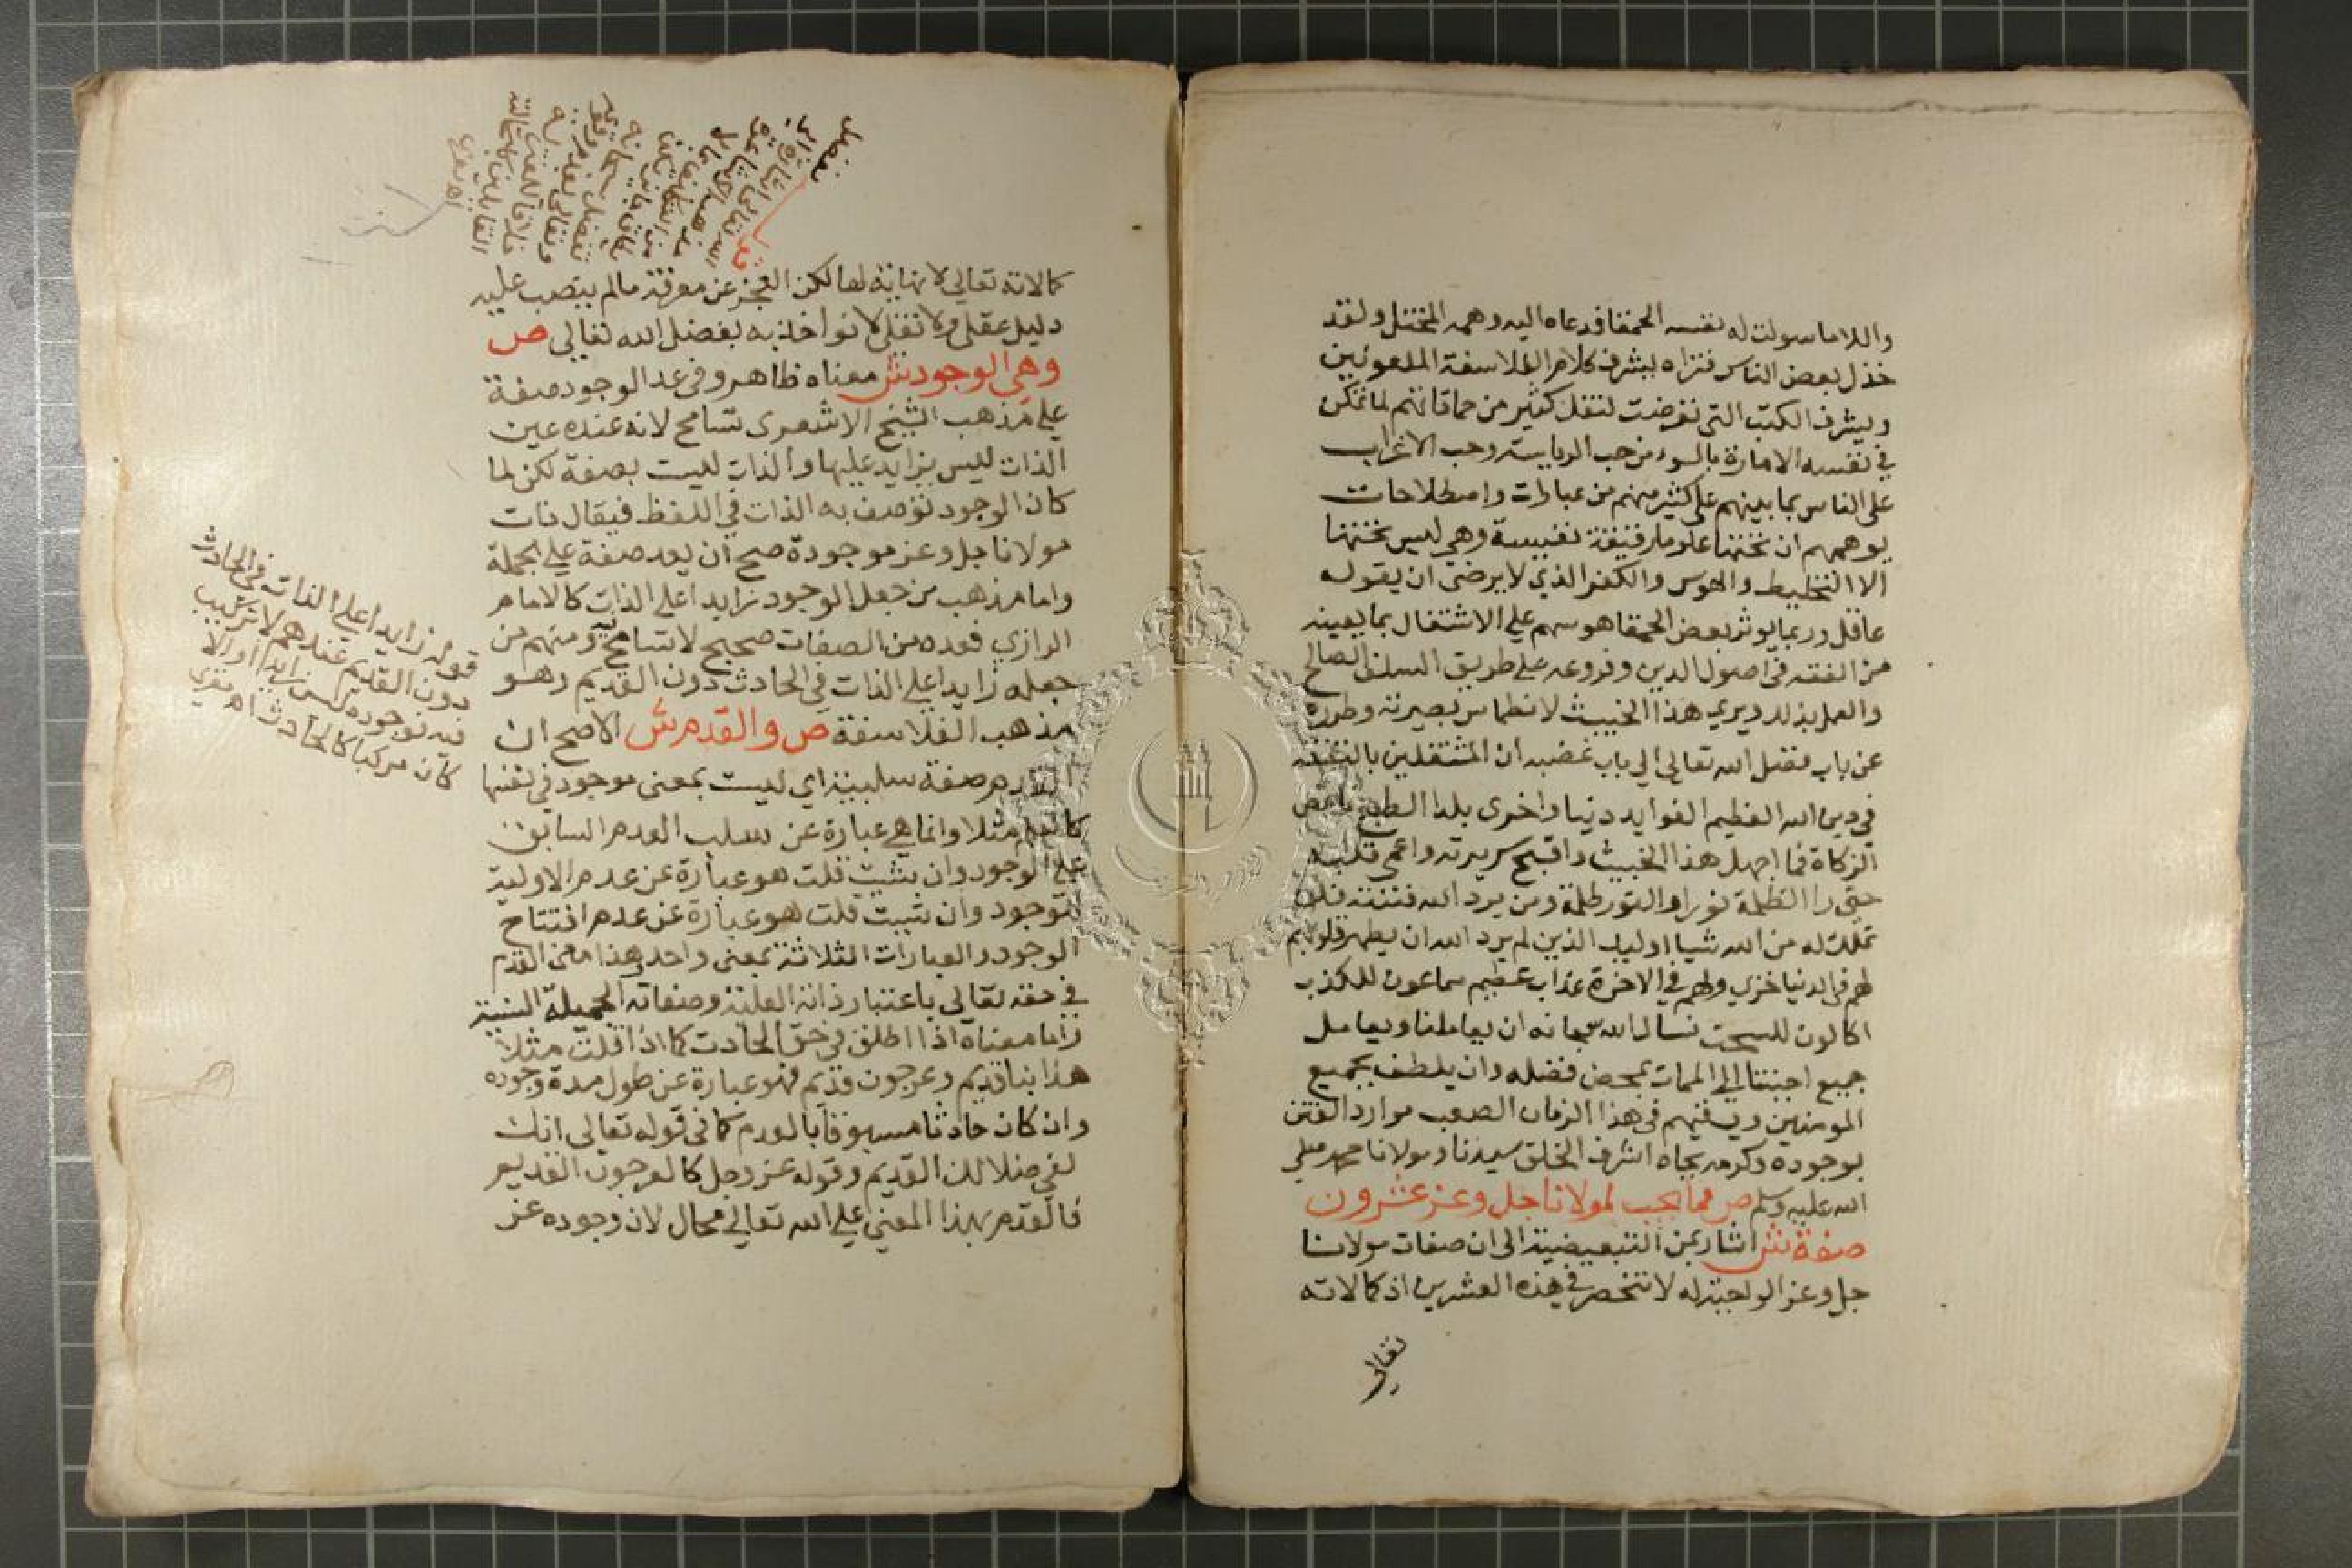 واللاما سولت له نفسه الحمقا ودعاه اليه وهمه المختل ولقد
خذل بعض الناس فتراه يشرف كلام الفلاسفة الملعونين
ويشرف الكتب التي تعرضت لنقل كثير من حماقاتهم لما تمكن
في نفسه الامارة بالسوء من حب الرياسة وحب الاغراب
على الناس بما ينبهم على كثير منهم من عبارات واصطلاحات
يوهمهم ان تحتها علوما دقيقة نفيسة وهي ليس تحتها
الا التخليط والهوس والكفر الذي لا يرضى ان يقوله
عاقل وربما يوثر بعض الحمقا هوسهم على الاشتغال بما يعينه
من الفقه في اصول الدين وفروعه على طريق السلف الصالح
والعمل بذلك ويرى هذا الخبيث لانطماس بصيرته وطرده
عن باب فضل الله تعالى الى باب غضبه ان المشتغلين بالتفقه
في دين الله العظيم الفوايد دنيا واخرى بلدا الطبع ناقص
الزكاة فما اجهل هذا الخبيث واقبح سريرته واعمى قلبه
حتى را الظلمة نورا والنور ظلمة ومن يرد الله فتنته فلن
تملك له من الله شيا اوليك الذين لم يرد الله ان يطهر قلوبهم
لهم في الدنيا خزي ولهم في الاخرة عذاب عظيم سماعون للكذب
اكالون للسحت نسال الله سبحانه ان يعاملنا ويعامل
جميع احبتنا الى الممات بمحض فضله وان يلطف بجميع
المومنين ويقيهم في هذا الزمان الصعب موارد الفتن
بوجوده وكرمه بجاه اشرف الخلق سيدنا ومولانا محمد صلى
الله عليه وسلم ص فمما يجب لمولانا جل وعز عشرون
صفة ش اشار بمن التبعيضية الى ان صفات مولانا
جل وعز الواجبة له لا تنحصر في هذه العشرين اذ كمالاته
تعالى
كمالاته تعالى لا نهاية لها لكن العجز عن معرفة ما لم ينتصب عليه
دليل عقلي ولا نقلي لا نواخذ به بفضل الله تعالى ص
وهي الوجود ش معناه ظاهر وفي عد الوجود صفة
على مذهب الشيخ الاشعري تسامح لانه عنده عين
الذات ليس بزايد عليها والذات ليست بصفة لكن لما
كان الوجود توصف به الذات في اللفظ فيقال ذات
مولانا جل وعز موجودة صح ان يعد صفة على الجملة
واما مذهب من جعل الوجود زايدا على الذات كالامام
الرازي فعده من الصفات صحيح لا تسامح فيه ومنهم من
جعله زايدا على الذات في الحادث دون القديم وهو
مذهب الفلاسفة ص والقدم ش الاصح ان
القدم صفة سلبية اي ليست بمعنى موجود في نفسها
كالعلم مثلا وانما هي عبارة عن سلب العدم السابق
على الوجود وان شيت قلت هو عبارة عن عدم الاولية
للوجود وان شيت قلت هو عبارة عن عدم افتتاح
الوجود والعبارات الثلاثة بمعنى واحد وهذا معنى القدم
في حقه تعالى باعتبار ذاته العلية وصفاته الجميلة السنية
واما معناه اذا اطلق في حق الحادث كما اذا قلت مثلا
هذا بنا قديم وعرجون قديم فهو عبارة عن طول مدة وجوده
وان كان حادثا مسبوقا بالعدم كما في قوله تعالى انك
لفي ضلالك القديم وقوله عز وجل كالعرجون القديم
فالقدم بهذا المعنى على الله تعالى محال لان وجوده عز
قوله زايدا على الذات في الحادث
دون القديم عندهم لا تركيب
فيه فوجوده ليس زايدا والا
كان مركبا كالحادث اه